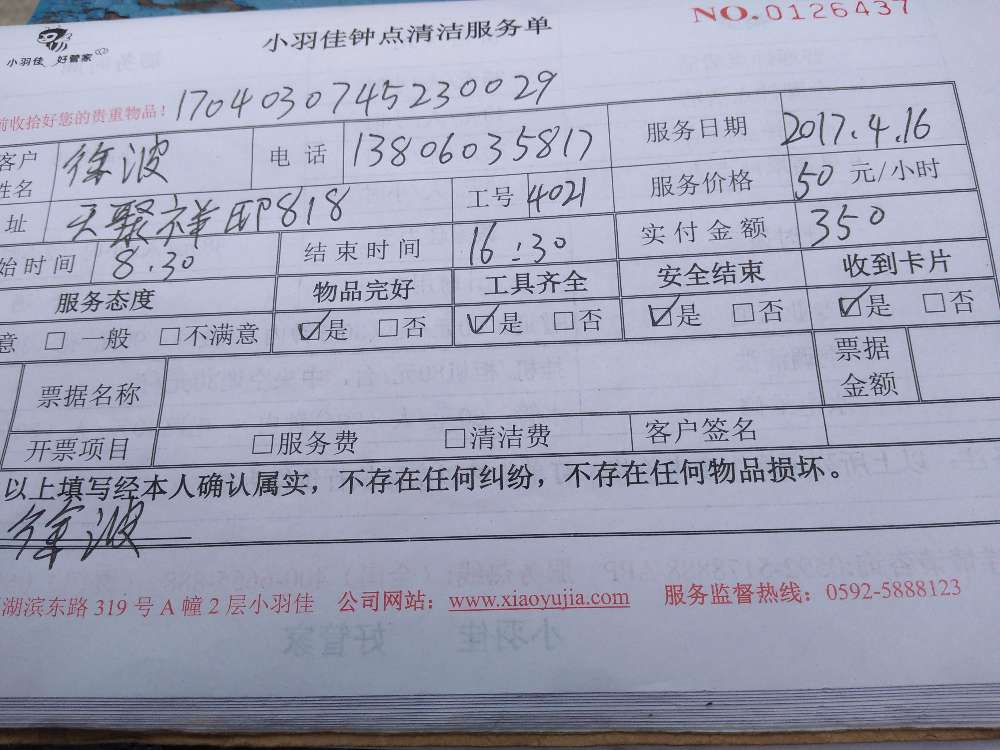 小羽佳 好管家
小羽佳钟点清洁服务单
NO.0126437
前收拾好您的贵重物品！ 1704030745230029
客户姓名 徐波 电话 13806035817 服务日期 2017.4.16
址 天聚祥邸818 工号 4021 服务价格 50 元/小时
始时间 8.30 结束时间 16:30 实付金额 350
服务态度 物品完好 工具齐全 安全结束 收到卡片
意 □ 一般 □不满意 ☑是 □否 ☑是 □否 ☑是 □否 ☑是 □否
票据名称 票据金额
开票项目 □服务费 □清洁费 客户签名
以上填写经本人确认属实，不存在任何纠纷，不存在任何物品损坏。
徐波
湖滨东路 319 号 A 幢 2 层小羽佳 公司网站：www.xiaoyujia.com 服务监督热线：0592-5888123